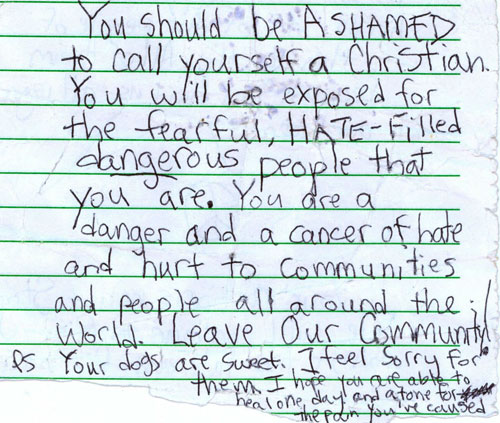 You should be ASHAMED
to call yourself a Christian.
You will be exposed for
the fearful, HATE-Filled
dangerous people that
you are. You are a
danger and a cancer of hate
and hurt to communities
and people all around the
World. Leave Our Community!
PS Your dogs are sweet. I feel sorry for
them. I hope you are able to
heal one day and atone for
the pain you've caused